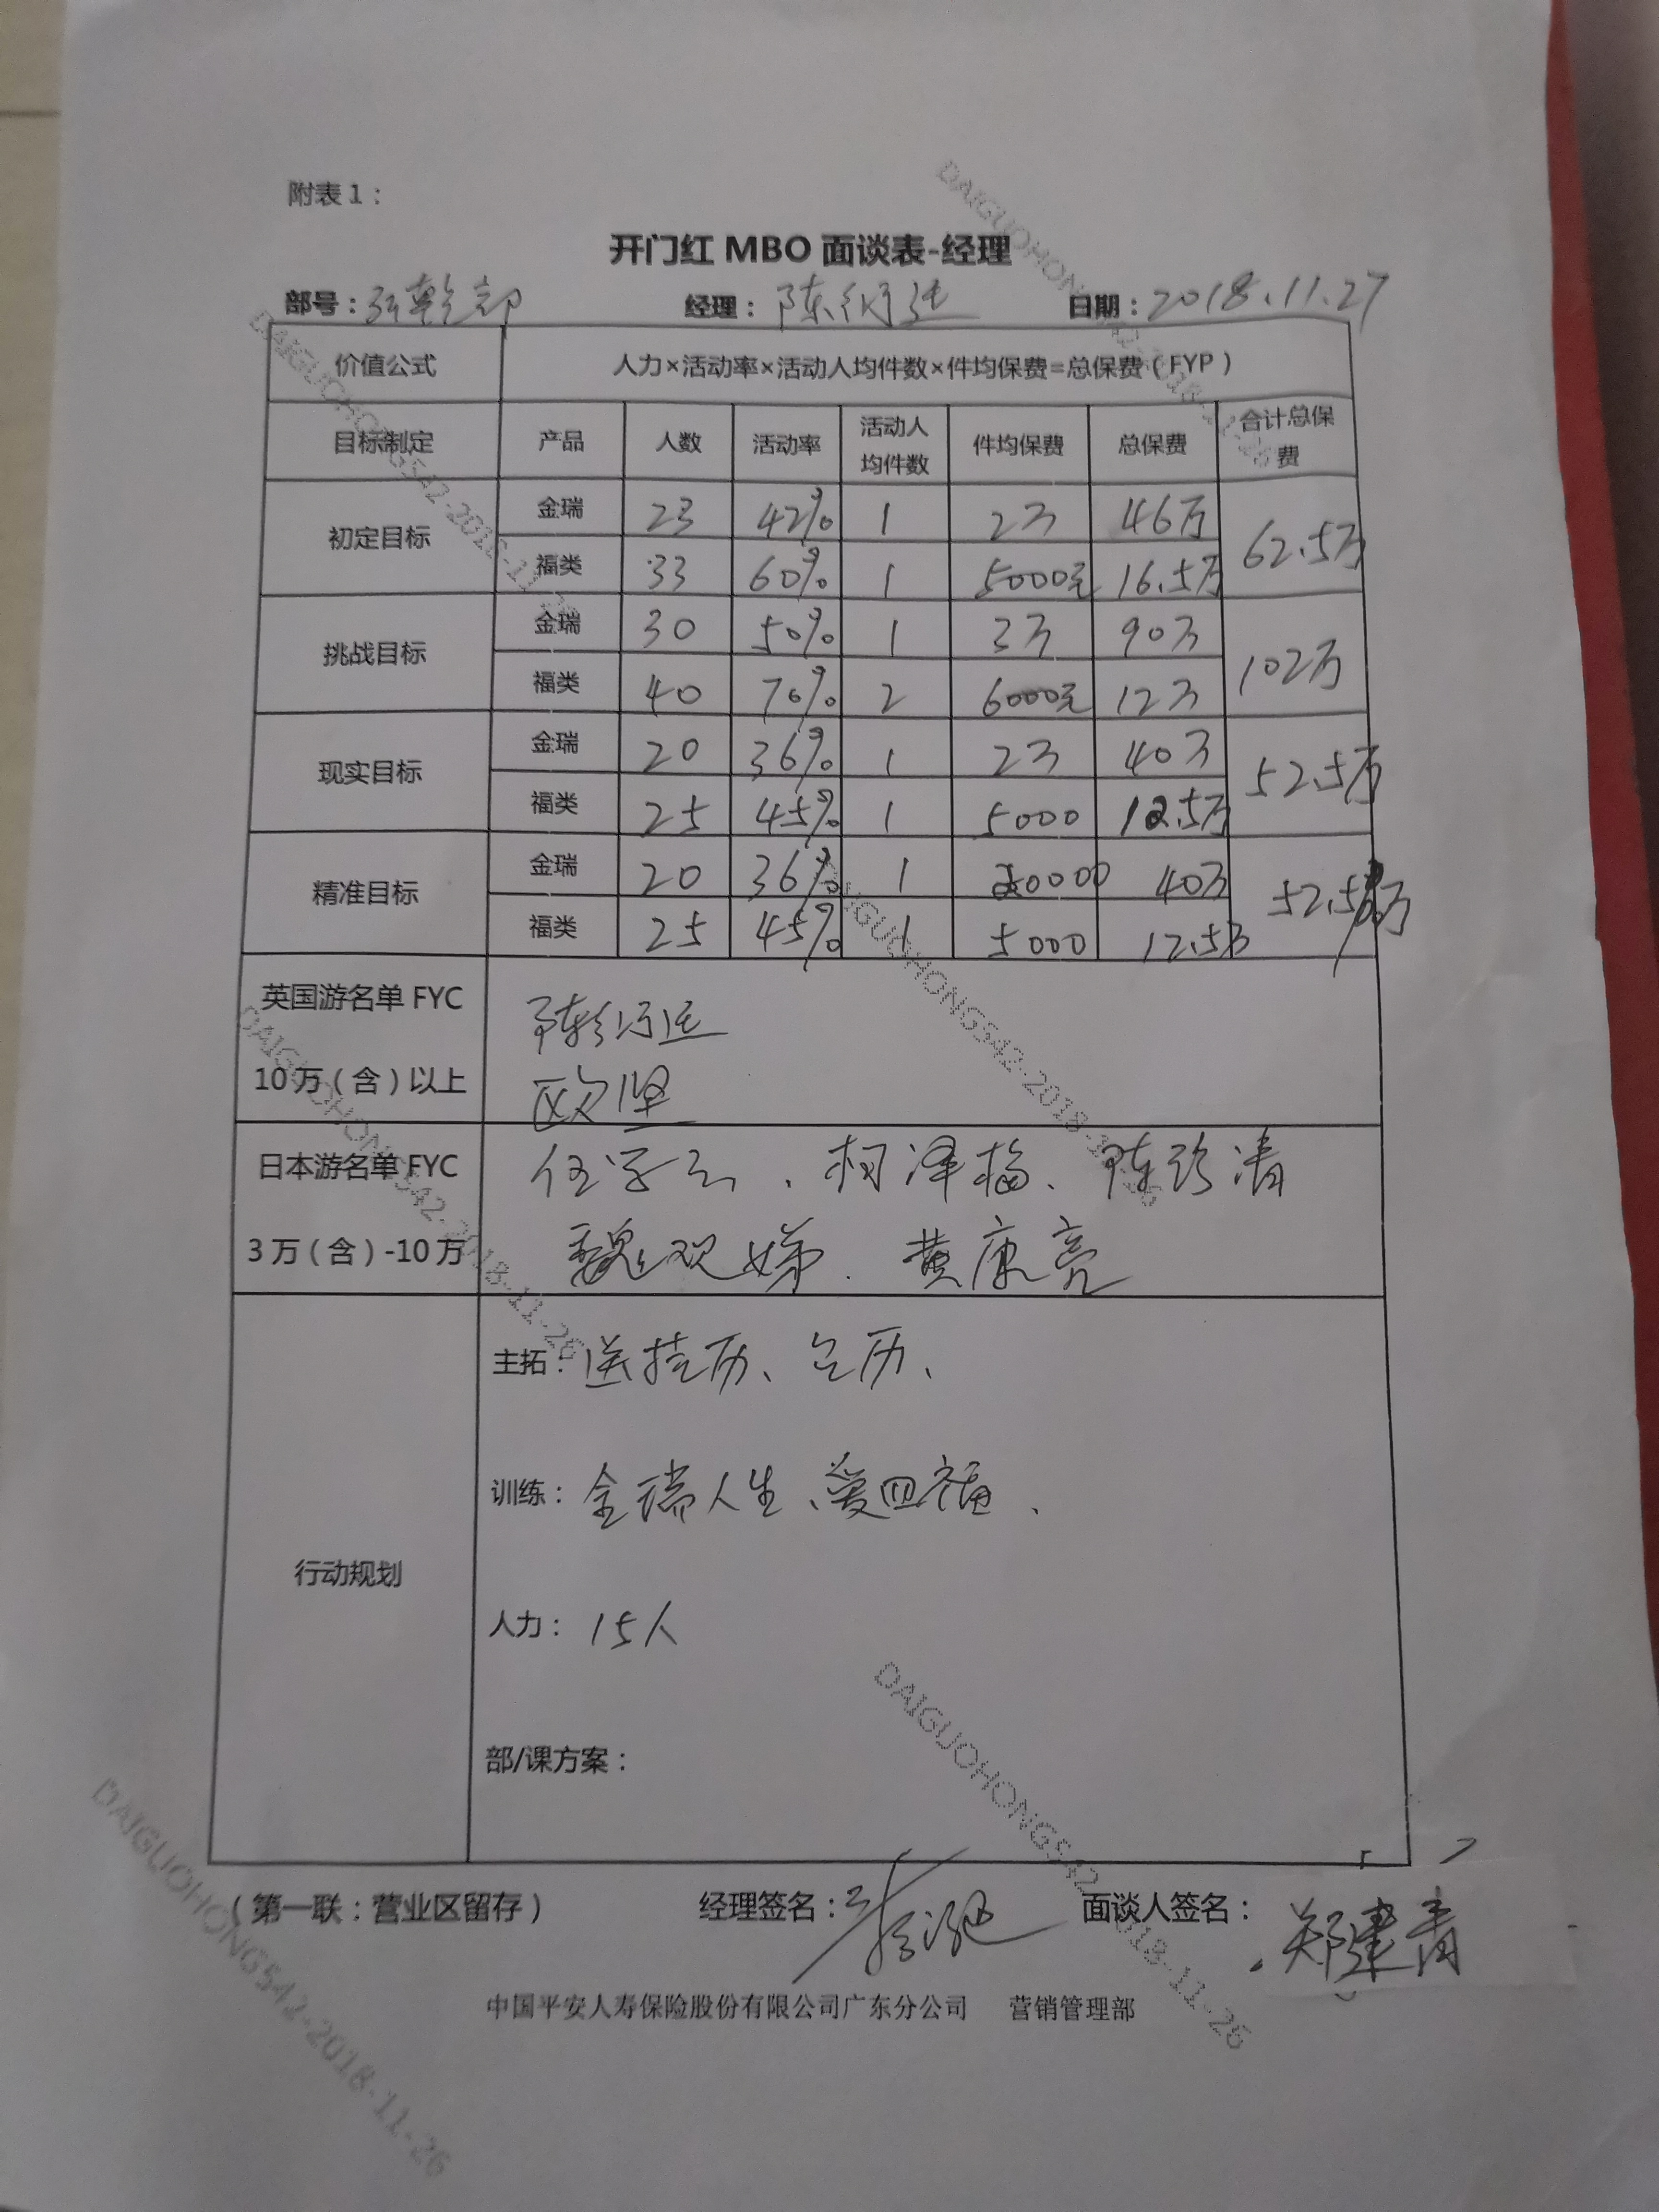 附表1：
开门红 MBO 面谈表-经理
部号： 经理：陈 日期：2018.11.27
价值公式 人力×活动率×活动人均件数×件均保费=总保费（FYP）
目标制定 产品 人数 活动率 活动人均件数 件均保费 总保费 合计总保费
初定目标 金瑞 23 42% 1 2万 46万 62.5万
福类 33 60% 1 5000元 16.5万
挑战目标 金瑞 30 50% 1 3万 90万 102万
福类 40 70% 2 6000元 12万
现实目标 金瑞 20 36% 1 2万 40万 52.5万
福类 25 45% 1 5000 12.5万
精准目标 金瑞 20 36% 1 20000 40万 52.5万
福类 25 45% 1 5000 12.5万
英国游名单 FYC
10万（含）以上
欧坚
日本游名单 FYC
3万（含）-10万
柯泽梅、陈珍清
魏观娣、黄康亮
行动规划
主拓：送挂历、台历、
训练：金瑞人生、爱四福、
人力：15人
部/课方案：
（第一联：营业区留存） 经理签名： 面谈人签名：郑建青
中国平安人寿保险股份有限公司广东分公司 营销管理部
DAIGUOHONG542-2018-11-26
DAIGUOHONG542-2018-11-26
DAIGUOHONG542-2018-11-26
DAIGUOHONG542-2018-11-26
DAIGUOHONG542-2018-11-26
DAIGUOHONG542-2018-11-26